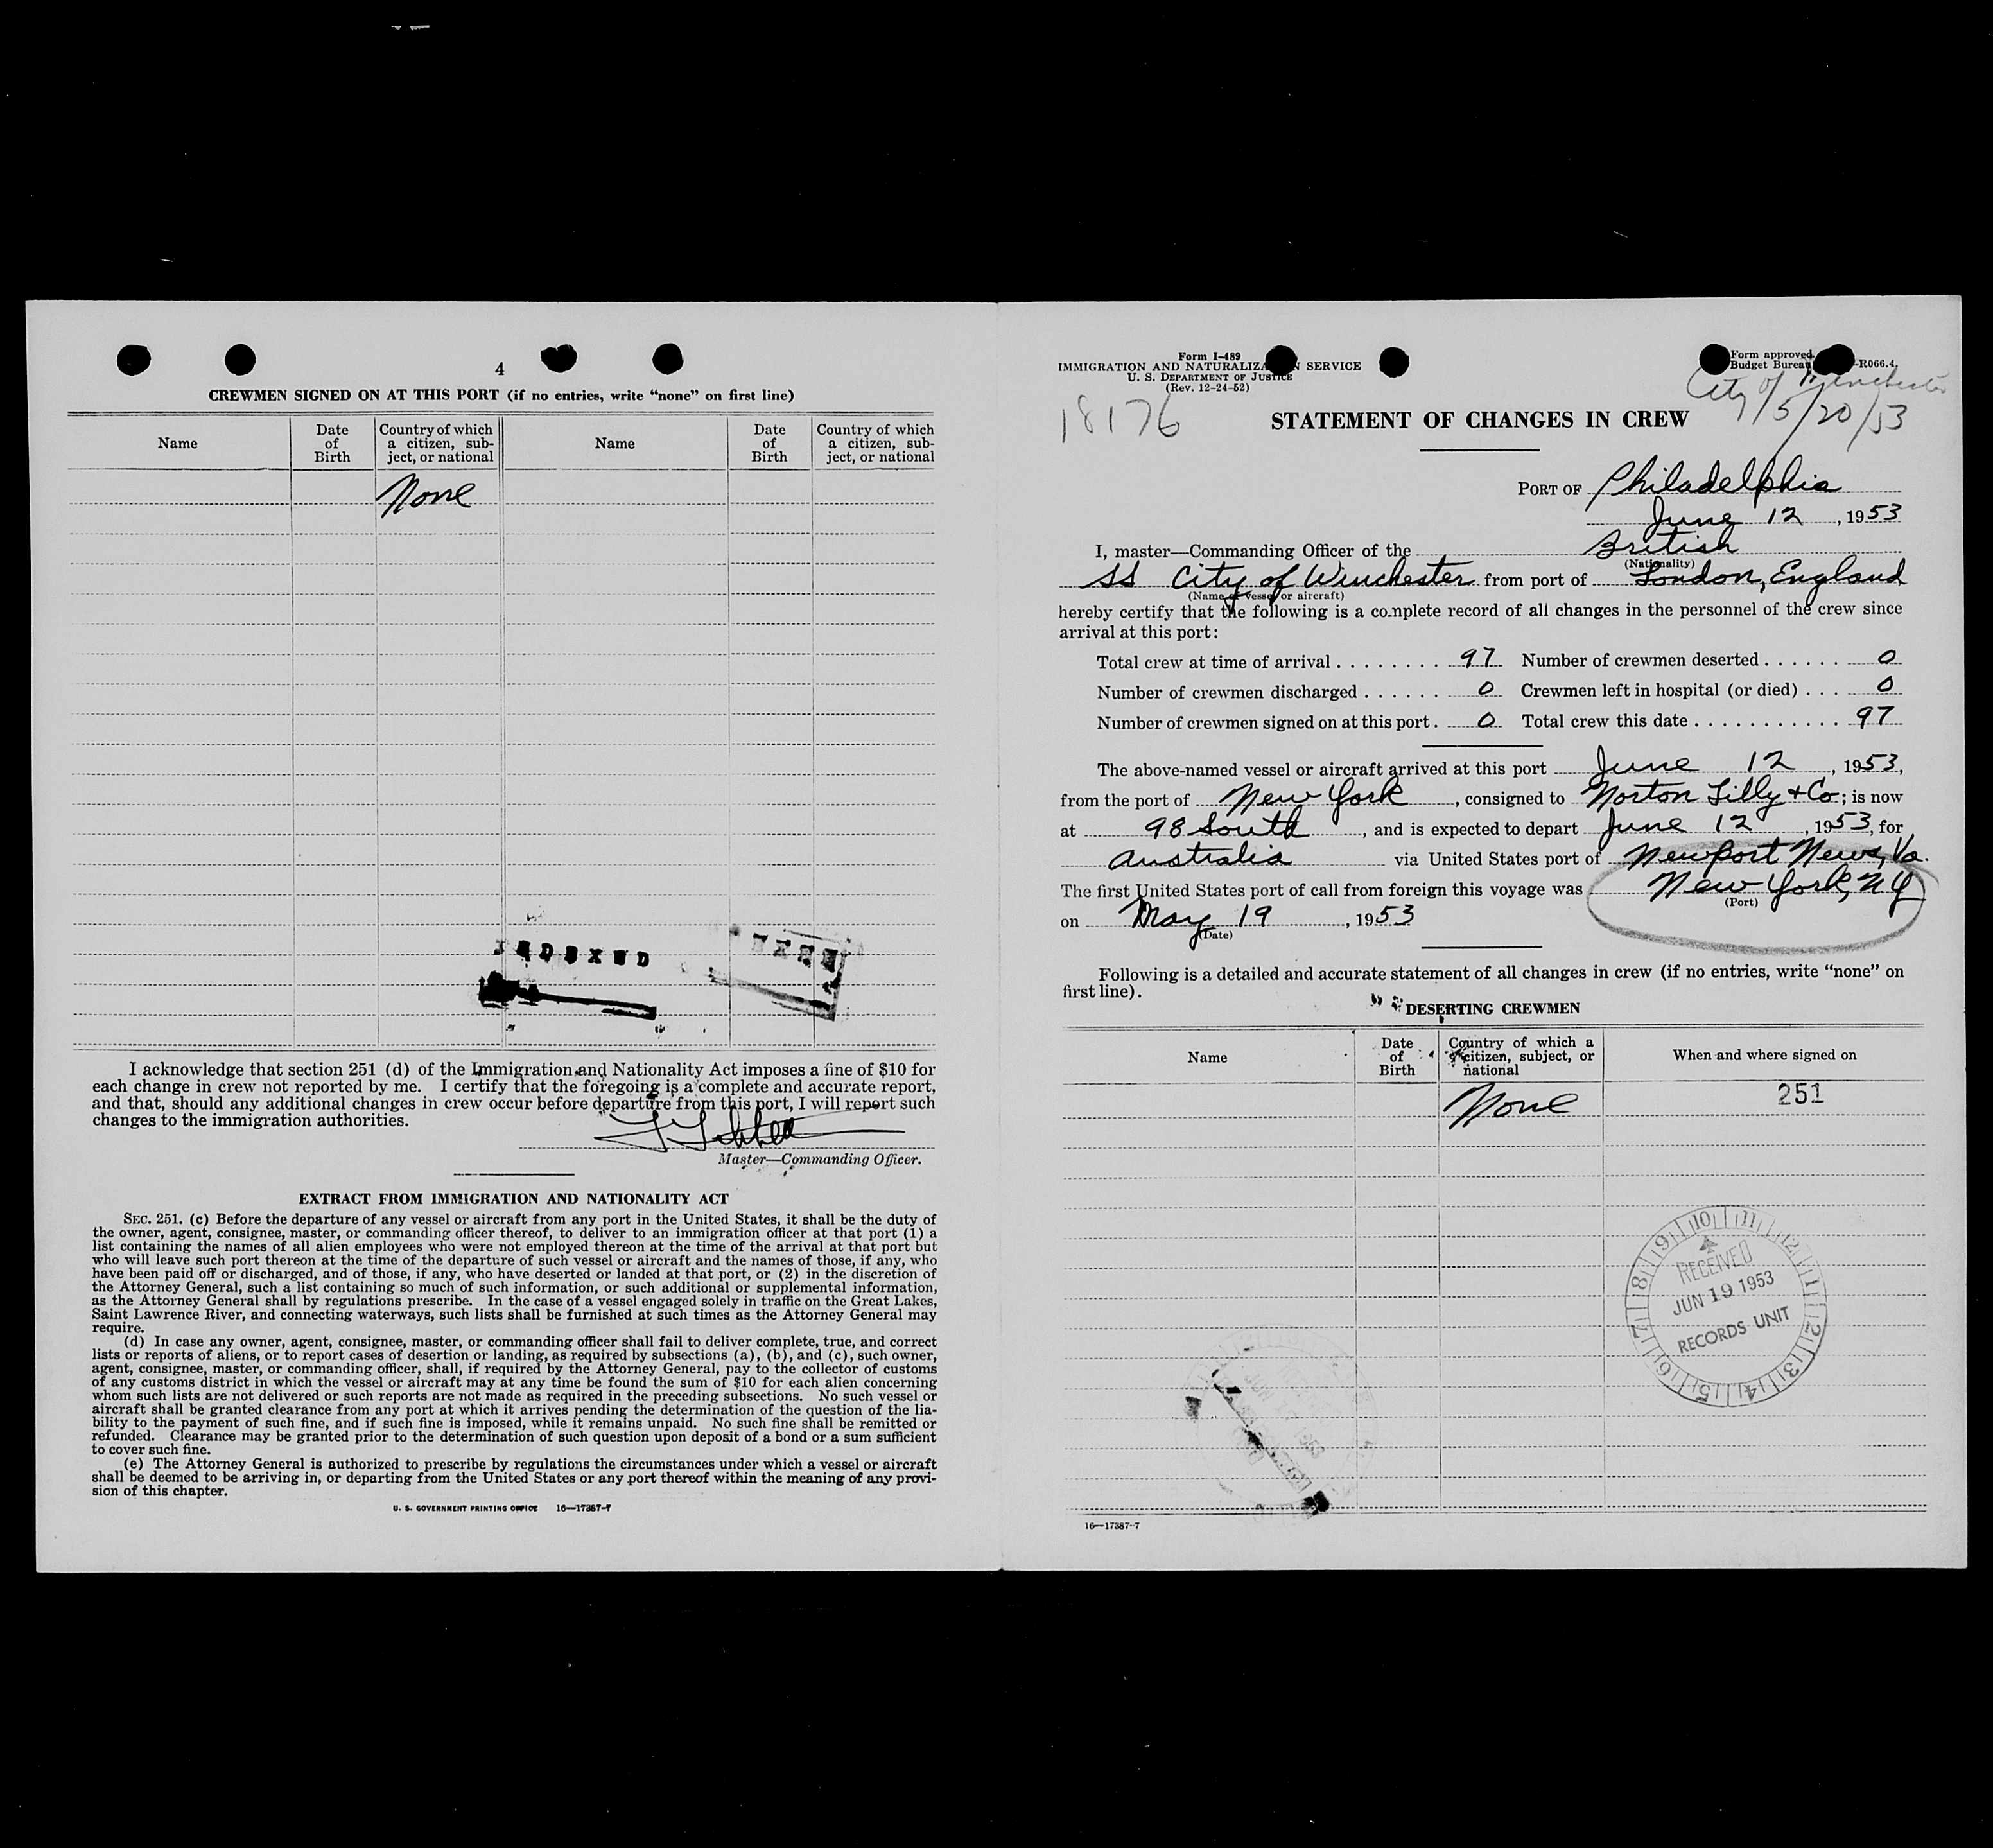 4
CREWMEN SIGNED ON AT THIS PORT (if no entries, write “none” on first line)
Name
Date of Birth
Country of which a citizen, subject, or national
Name
Date of Birth
Country of which a citizen, subject, or national
None
INDEXED
I acknowledge that section 251 (d) of the Immigration and Nationality Act imposes a fine of $10 for
each change in crew not reported by me. I certify that the foregoing is a complete and accurate report,
and that, should any additional changes in crew occur before departure from this port, I will report such
changes to the immigration authorities.
Master—Commanding Officer.
EXTRACT FROM IMMIGRATION AND NATIONALITY ACT
SEC. 251. (c) Before the departure of any vessel or aircraft from any port in the United States, it shall be the duty of
the owner, agent, consignee, master, or commanding officer thereof, to deliver to an immigration officer at that port (1) a
list containing the names of all alien employees who were not employed thereon at the time of the arrival at that port but
who will leave such port thereon at the time of the departure of such vessel or aircraft and the names of those, if any, who
have been paid off or discharged, and of those, if any, who have deserted or landed at that port, or (2) in the discretion of
the Attorney General, such a list containing so much of such information, or such additional or supplemental information,
as the Attorney General shall by regulations prescribe. In the case of a vessel engaged solely in traffic on the Great Lakes,
Saint Lawrence River, and connecting waterways, such lists shall be furnished at such times as the Attorney General may
require.
(d) In case any owner, agent, consignee, master, or commanding officer shall fail to deliver complete, true, and correct
lists or reports of aliens, or to report cases of desertion or landing, as required by subsections (a), (b), and (c), such owner,
agent, consignee, master, or commanding officer, shall, if required by the Attorney General, pay to the collector of customs
of any customs district in which the vessel or aircraft may at any time be found the sum of $10 for each alien concerning
whom such lists are not delivered or such reports are not made as required in the preceding subsections. No such vessel or
aircraft shall be granted clearance from any port at which it arrives pending the determination of the question of the lia-
bility to the payment of such fine, and if such fine is imposed, while it remains unpaid. No such fine shall be remitted or
refunded. Clearance may be granted prior to the determination of such question upon deposit of a bond or a sum sufficient
to cover such fine.
(e) The Attorney General is authorized to prescribe by regulations the circumstances under which a vessel or aircraft
shall be deemed to be arriving in, or departing from the United States or any port thereof within the meaning of any provi-
sion of this chapter.
U. S. GOVERNMENT PRINTING OFFICE 16—17387-7
Form I-489
IMMIGRATION AND NATURALIZATION SERVICE
U. S. DEPARTMENT OF JUSTICE
(Rev. 12-24-52)
Form approved.
Budget Bureau -R066.4.
City of Winchester
5/20/53
18176
STATEMENT OF CHANGES IN CREW
PORT OF Philadelphia
June 12, 1953
I, master—Commanding Officer of the British
(Nationality)
SS City of Winchester from port of London, England
(Name of vessel or aircraft)
hereby certify that the following is a complete record of all changes in the personnel of the crew since
arrival at this port:
Total crew at time of arrival . . . . . . . . 97 Number of crewmen deserted . . . . . . 0
Number of crewmen discharged . . . . . . 0 Crewmen left in hospital (or died) . . . 0
Number of crewmen signed on at this port . 0 Total crew this date . . . . . . . . . . . 97
The above-named vessel or aircraft arrived at this port June 12, 1953,
from the port of New York, consigned to Norton Lilly + Co; is now
at 98 South, and is expected to depart June 12, 1953, for
Australia via United States port of Newport News, Va.
The first United States port of call from foreign this voyage was New York, NY
(Port)
on May 19, 1953
(Date)
Following is a detailed and accurate statement of all changes in crew (if no entries, write “none” on
first line).
DESERTING CREWMEN
Name
Date of Birth
Country of which a citizen, subject, or national
When and where signed on
None
251
10 11 12 1 2 3 4 5 6 7 8 9
RECEIVED
JUN 19 1953
RECORDS UNIT
16—17387-7